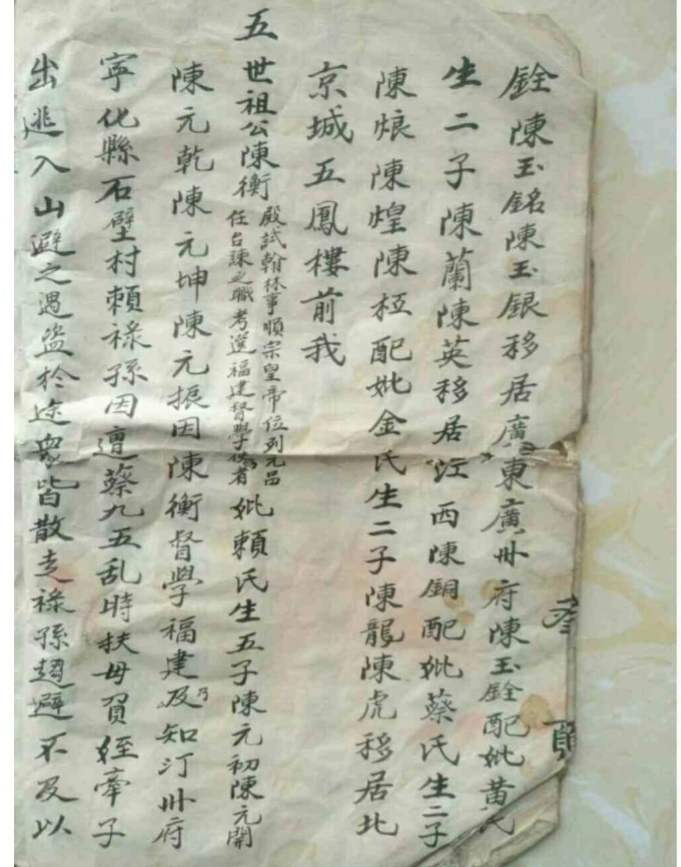 銓陳玉銘陳玉銀移居廣東廣州府陳玉銓配妣黄氏
生二子陳蘭陳英移居江西陳銅配妣蔡氏生二子
陳烺陳煌陳桓配妣金氏生二子陳龍陳虎移居北
京城五鳳樓前我
五世祖公陳衡殿試翰林事順宗皇帝位列元品
任台諫之職考選福建督學使者
妣賴氏生五子陳元初陳元開
陳元乾陳元坤陳元振因陳衡督學福建及乃知汀州府
寧化縣石壁村賴祿孫因遭蔡九五乱時扶母負姪牽子
出逃入山避之遇盜於途眾皆散走祿孫趨避不及以
叁
頁